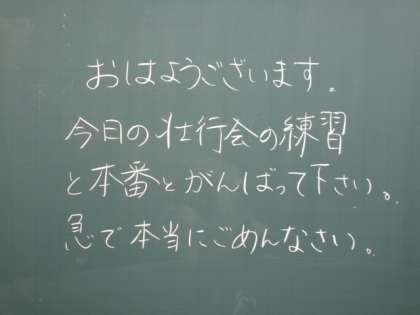 おはようございます。
今日の壮行会の練習
と本番とがんばって下さい。
急で本当にごめんなさい。